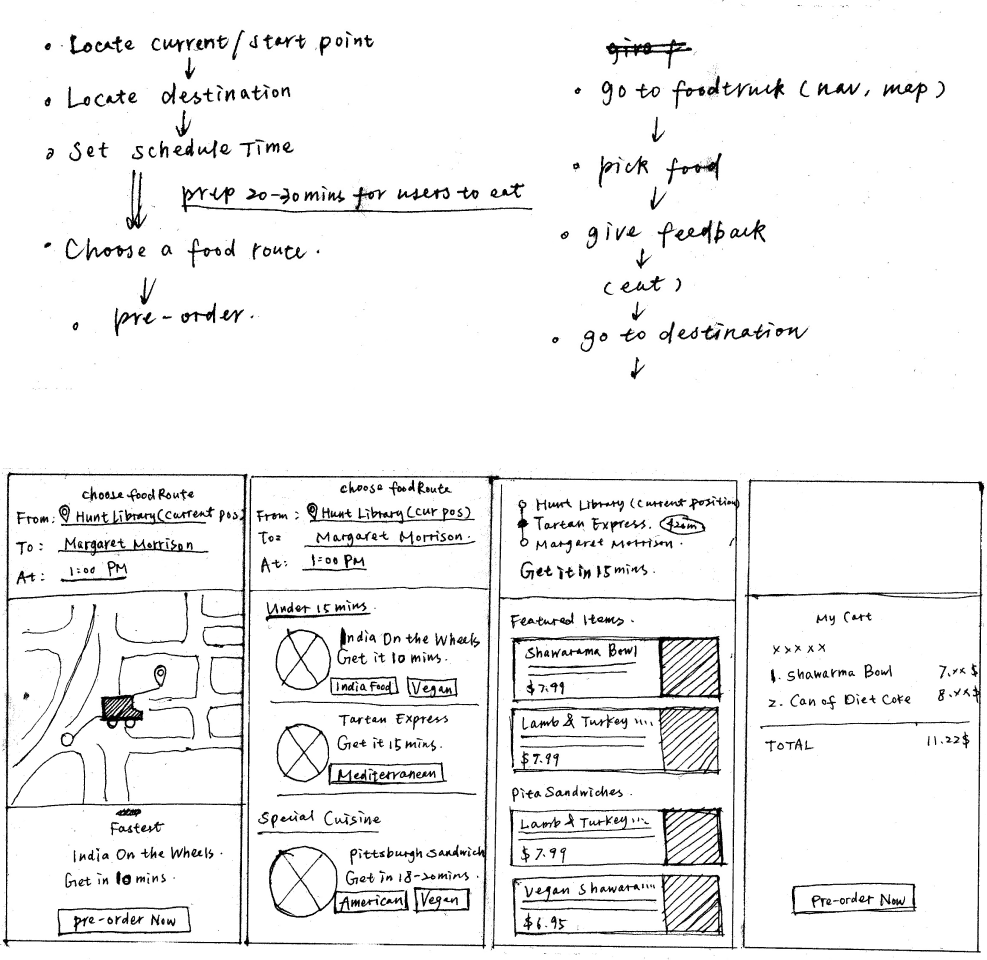 • Locate current/start point
• Locate destination
• Set schedule Time
prep 20-30mins for users to eat
• Choose a food route.
• pre-order.
give f
• go to foodtruck (nav, map)
• pick food
• give feedback
(eat)
• go to destination
choose foodRoute
From: Hunt Library (Current pos)
To: Margaret Morrison
At: 1:00 PM
Fastest
India On the Wheels.
Get in 10 mins.
pre-order Now
choose foodRoute
From: Hunt Library (cur pos)
To: Margaret Morrison.
At: 1:00 PM
Under 15 mins.
India On the Wheels
Get it 10 mins.
India Food Vegan
Tartan Express
Get it 15 mins.
Mediterranean
Special Cuisine
Pittsburgh Sandwich
Get in 18-20mins.
American Vegan
Hunt Library (Current position)
Tartan Express.
Margaret Morrison.
Get it in 15 mins.
Featured Items.
Shawarama Bowl
$7.99
Lamb & Turkey ....
$7.99
Pita Sandwiches.
Lamb & Turkey ...
$7.99
Vegan Shawara....
$6.95
My Cart
xxxxx
1. Shawarma Bowl 7.xx $
2. Can of Diet Coke 8.xx $
TOTAL 11.22$
Pre-order Now